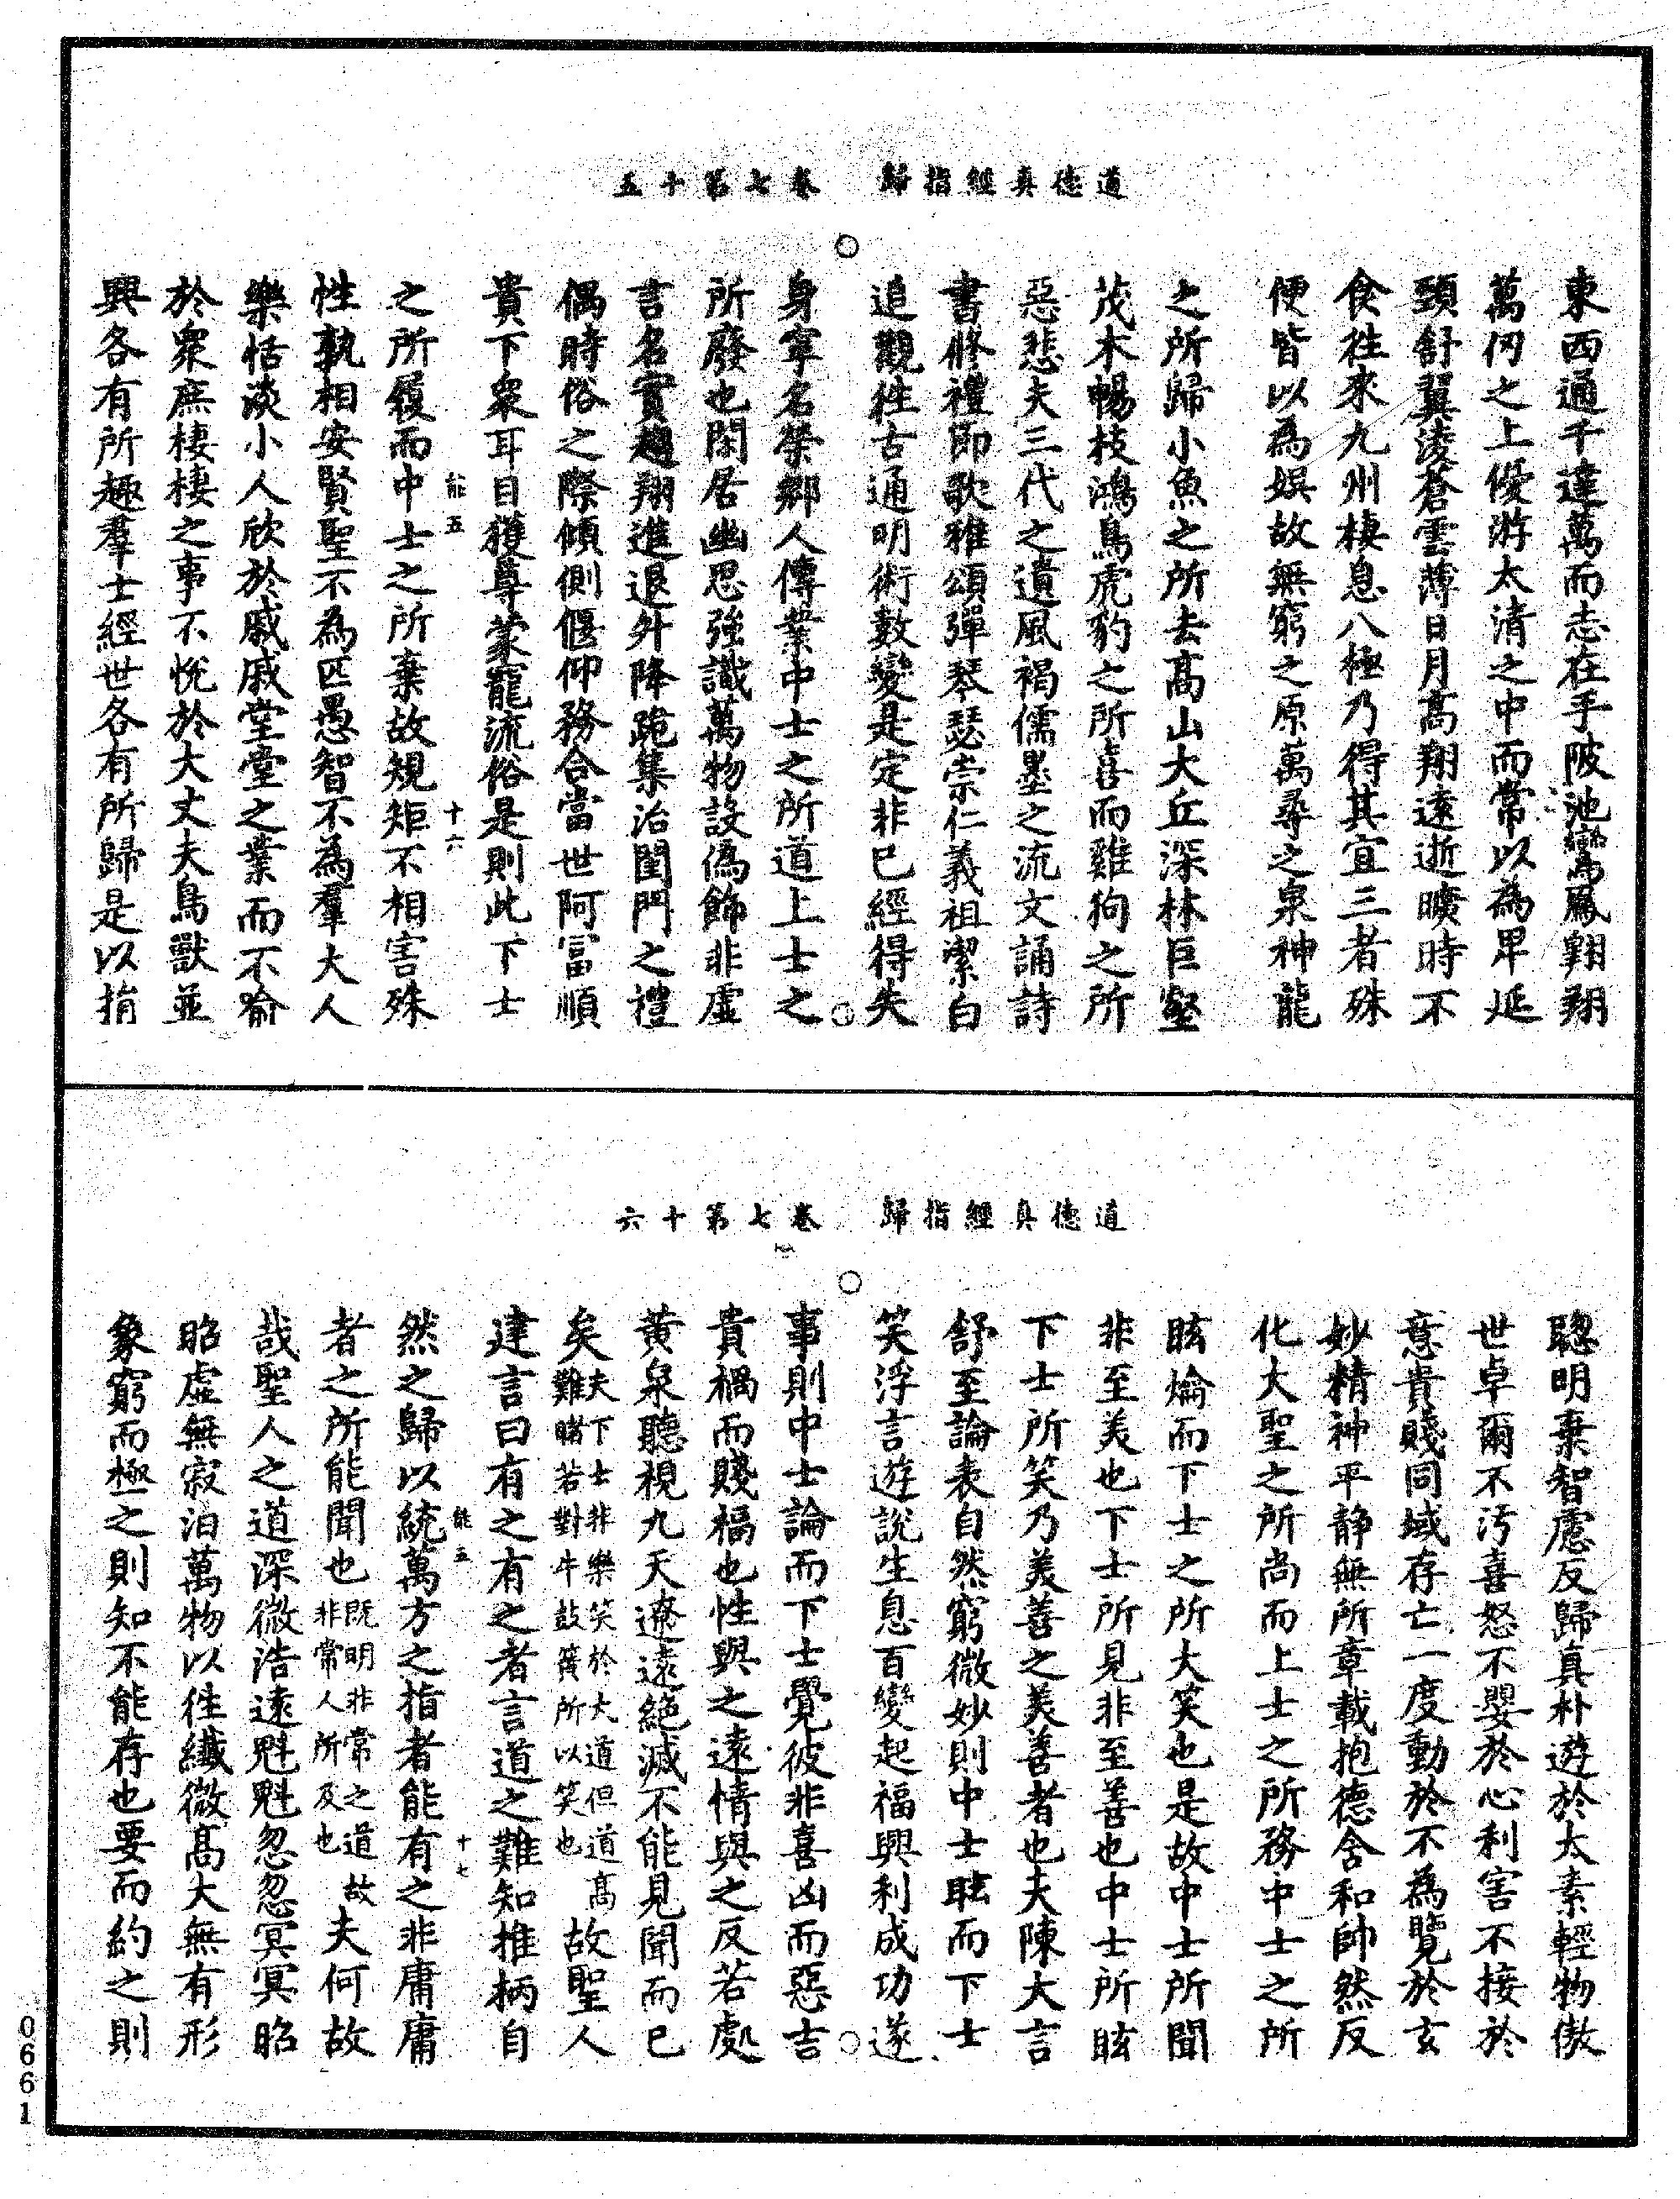 道德真經指歸　卷七第十五
東西通千達萬而志在乎陂池鸞鳳翱翔
萬仞之上優游太清之中而常以為卑延
頸舒翼淩蒼雲薄日月高翔遠逝曠時不
食徃來九州棲息八極乃得其宜三者殊
便皆以為娛故無窮之原萬尋之泉神龍
之所歸小魚之所去高山大丘深林巨壑
茂木暢枝鴻鳥虎豹之所喜而雞狗之所
惡悲夫三代之遺風褐儒墨之流文誦詩
書修禮節歌雅頌彈琴瑟崇仁義祖潔白
追觀徃古通明術數變是定非已經得失
身寧名榮鄉人傳業中士之所道上士之
所廢也閑居幽思強識萬物設偽飾非虛
言名實趨翔進退升降跪集治閨門之禮
偶時俗之際傾側偃仰務合當世阿富順
貴下衆耳目獲尊蒙寵流俗是則此下士
能五
十六
之所履而中士之所棄故規矩不相害殊
性孰相安賢聖不為匹愚智不為羣大人
樂恬淡小人欣於戚戚堂堂之業而不喻
於衆庶棲棲之事不悅於大丈夫鳥獸並
興各有所趣羣士經世各有所歸是以捐
道德真經指歸　卷七第十六
聰明棄智慮反歸真朴遊於太素輕物傲
世卓爾不污喜怒不嬰於心利害不接於
意貴賤同域存亡一度動於不為覽於玄
妙精神平静無所章載抱德含和帥然反
化大聖之所尚而上士之所務中士之所
眩爚而下士之所大笑也是故中士所聞
非至美也下士所見非至善也中士所眩
下士所笑乃美善之美善者也夫陳大言
舒至論表自然窮微妙則中士眩而下士
笑浮言遊說生息百變起福興利成功遂
事則中士論而下士覺彼非喜凶而惡吉
貴禍而賤福也性與之遠情與之反若處
黄泉聽視九天遼遠絕滅不能見聞而已
矣夫下士非樂笑於大道但道高難睹若對牛鼓簧所以笑也故聖人
建言曰有之有之者言道之難知推柄自
能五
十七
然之歸以統萬方之指者能有之非庸庸
者之所能聞也既明非常之道故非常人所及也夫何故
哉聖人之道深微浩遠魁魁忽忽冥冥昭
昭虛無寂泊萬物以徃纖微高大無有形
象窮而極之則知不能存也要而約之則
0661